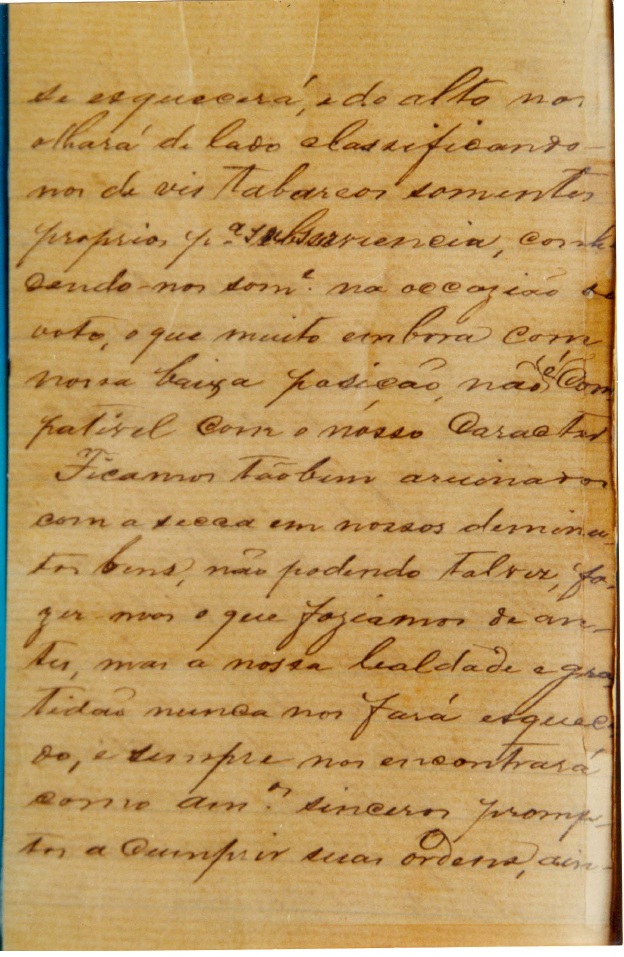 se esquecerá, e do alto nos
olhará de lado classificando-
nos de vis tabareos somentes
proprios p.ª subserviencia, conhe
cendo-nos som.e na occazião do
voto, o que muito embora com
nossa baixa posição, não é com
pativel com o nósso caracter
Ficamos tãobem arruinados
com a secca em nossos deminu-
tos bens, não podendo talvez, fa-
zer-mos o que faziamos de an-
tes, mas a nossa lealdade e gra
tidão nunca nos fará esqueci
do, e sempre nos encontrará
como am.os sinceros promp-
tos a cumprir suas órdens, ain-